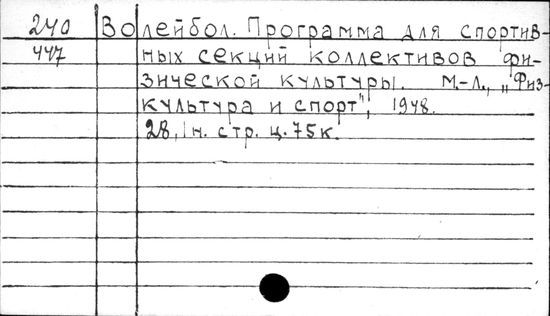 240 Волейбол. Программа для спортив-
447 ных секций коллективов фи-
зической культуры. М.-Л., „Физ-
культура и спорт", 1948.
28, 1 н. стр. ц. 75 к.